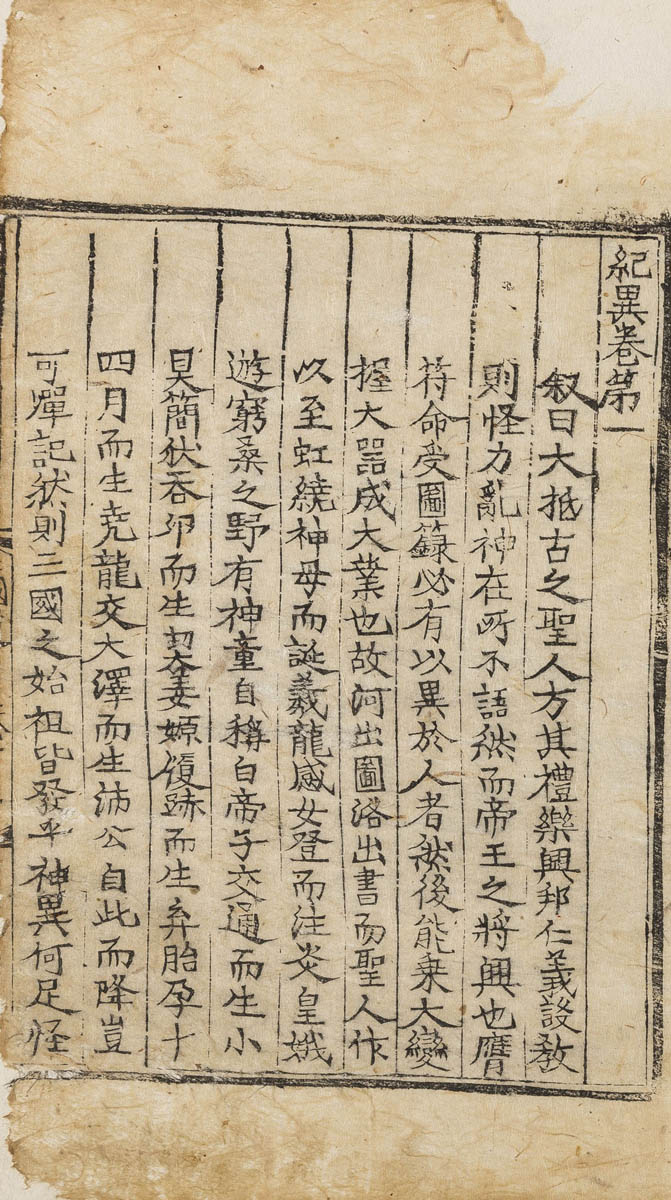 紀異卷第一
叙曰大抵古之聖人方其禮樂興邦仁義設教
則怪力亂神在所不語然而帝王之將興也膺
符命受圖籙必有以異於人者然後能乗大變
握大器成大業也故河出圖洛出書而聖人作
以至虹繞神母而誕羲龍感女登而注炎皇娥
遊窮桒之野有神童自稱白帝子交通而生小
昊簡狄吞卵而生契姜嫄履跡而生弃胎孕十
四月而生尭龍交大澤而生沛公自此而降豈
可殫記然則三國之始祖皆發乎神異何足怪